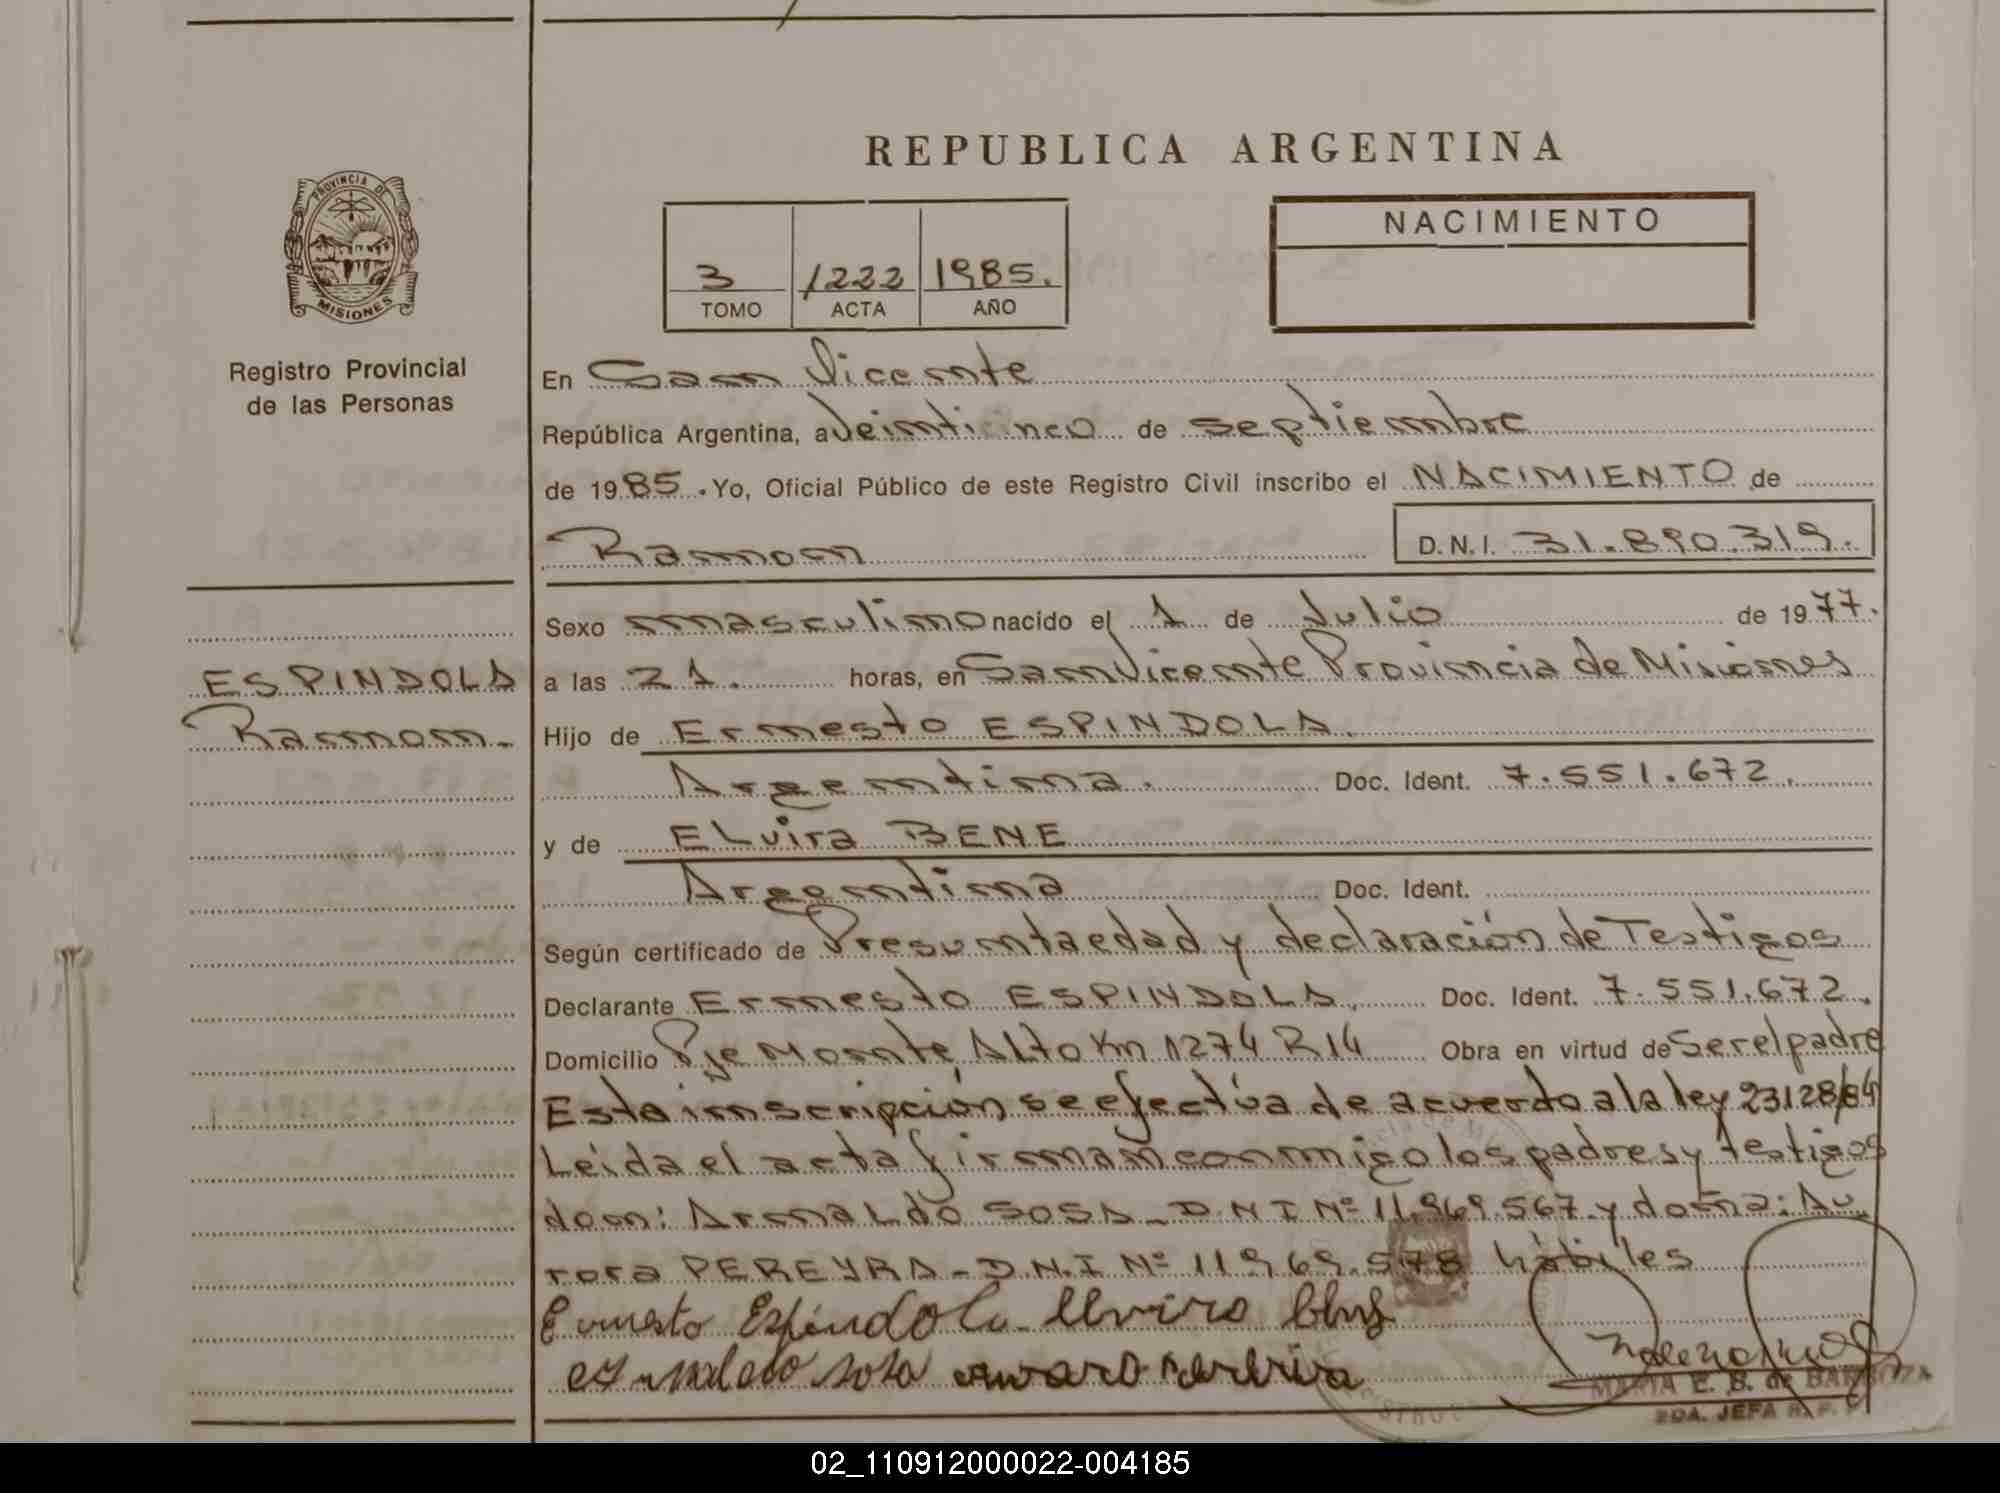 REPUBLICA ARGENTINA
PROVINCIA DE MISIONES
Registro Provincial
de las Personas
3 1222 1985.
TOMO ACTA AÑO
NACIMIENTO
En San Vicente
República Argentina, a Veinticinco de septiembre
de 1985. Yo, Oficial Público de este Registro Civil inscribo el NACIMIENTO de
Ramon D.N.I. 31.890.319.
ESPINDOLA
Ramon.
Sexo masculino nacido el 1 de Julio de 1977.
a las 21. horas, en San Vicente Provincia de Misiones
Hijo de Ernesto ESPINDOLA.
Argentina. Doc. Ident. 7.551.672.
y de ELvira BENE
Argentina Doc. Ident.
Según certificado de Presunta edad y declaración de Testigos
Declarante Ernesto ESPINDOLA. Doc. Ident. 7.551.672.
Domicilio Pje Monte Alto Km 1274 R 14 Obra en virtud de Ser el padre
Esta inscripción se efectúa de acuerdo a la ley 23128/84
Leída el acta firman conmigo los padres y testigos
don: ArnaLdo SOSA - D N I Nº 11.969.567 y doña: Au
rora PEREYRA - D.N.I Nº 11.969.578 hábiles
Ernesto Espíndola Elvira
sosa
MARIA E. B. de BARBOZA
2DA. JEFA R. P. P.
02_110912000022-004185